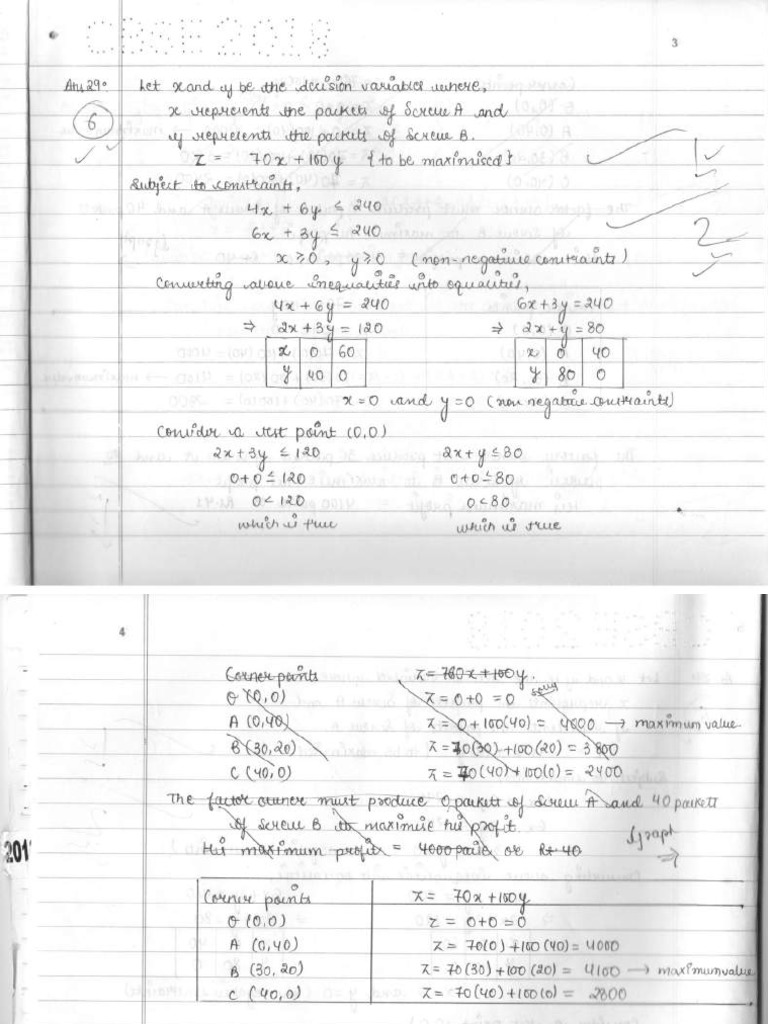 CBSE 2018
3
Ans 29.
Let x and y be the decision variables where,
6
x represents the packets of Screw A and
y represents the packets of Screw B.
Z = 70x + 100y {to be maximised}
1
Subject to constraints,
4x + 6y ≤ 240
6x + 3y ≤ 240
2
x ≥ 0 , y ≥ 0 (non-negative constraints)
Converting above inequalities into equalities,
4x + 6y = 240 6x + 3y = 240
⇒ 2x + 3y = 120 ⇒ 2x + y = 80
x 0 60 x 0 40
y 40 0 y 80 0
x = 0 and y = 0 (non negative constraints)
Consider a test point (0,0)
2x + 3y ≤ 120 2x + y ≤ 80
0 + 0 ≤ 120 0 + 0 ≤ 80
0 < 120 0 < 80
which is true which is true
4
Corner points z = 70x + 100y.
O (0,0) z = 0 + 0 = 0
A (0,40) z = 0 + 100(40) = 4000 → maximum value
B (30,20) z = 70(30) + 100(20) = 3800
C (40,0) z = 70(40) + 100(0) = 2400
The factor owner must produce 0 packets of Screw A and 40 packets
of Screw B to maximise his profit.
Graph ⇒
His maximum profit = 4000 paise or Rs 40
2011
Corner points z = 70x + 100y
O (0,0) z = 0 + 0 = 0
A (0,40) z = 70(0) + 100(40) = 4000
B (30,20) z = 70(30) + 100(20) = 4100 → maximum value
C (40,0) z = 70(40) + 100(0) = 2800